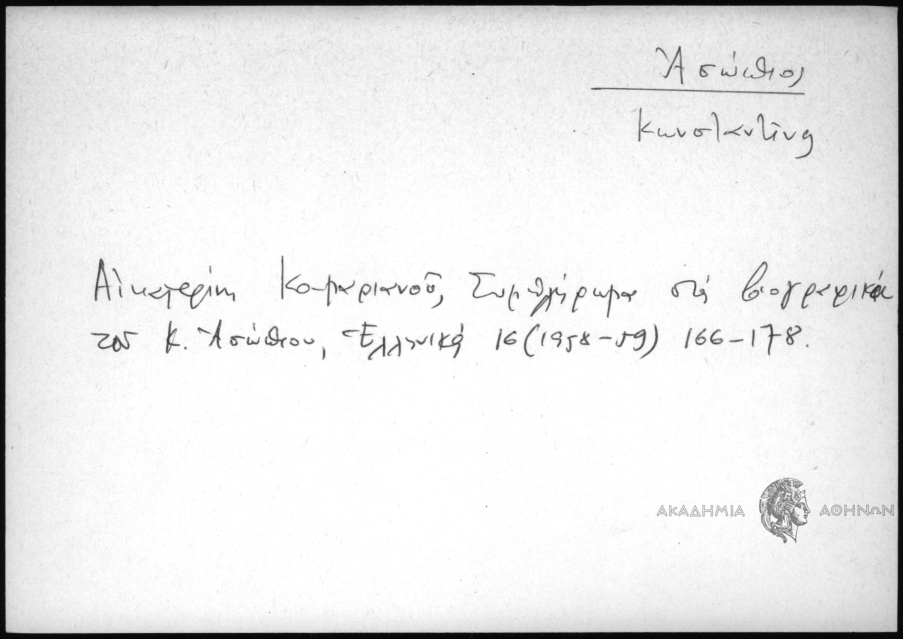 Ἀσώπιος
Κωνσταντῖνος
Αἰκατερίνη Καμαριανοῦ, Συμπλήρωμα στὰ βιογραφικὰ
τοῦ Κ. Ἀσώπιου, Ἑλληνικά 16 (1958-59) 166-178.
ΑΚΑΔΗΜΙΑ ΑΘΗΝΩΝ